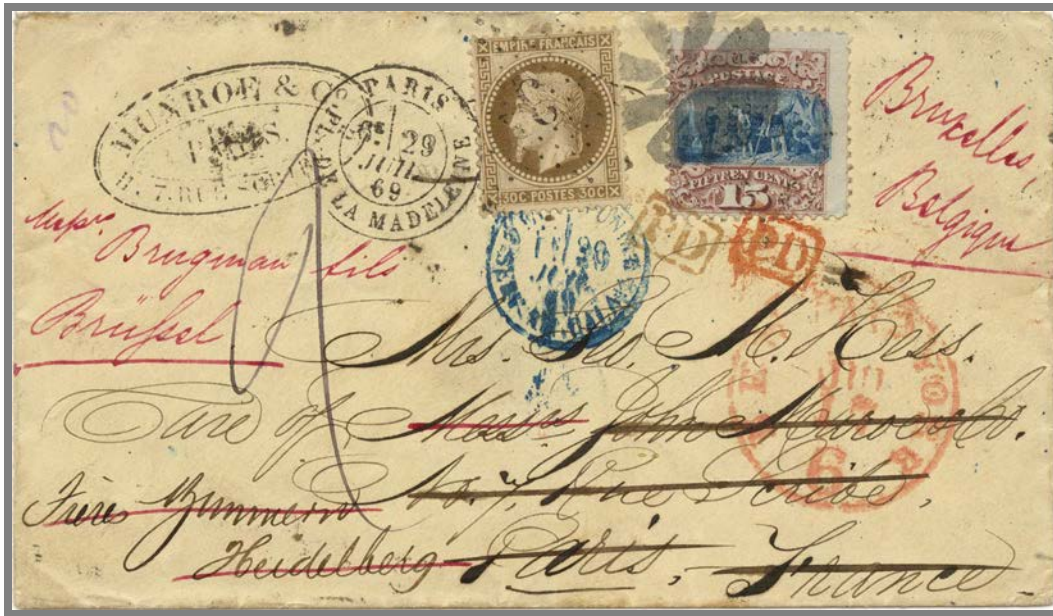 MUNROE & Co
PARIS
7. RUE
PARIS
PL. DE LA MADELEINE
29
JUIL
69
EMPIRE FRANÇAIS
30C POSTES 30C
U.S.
POSTAGE
FIFTEEN CENTS
15
Bruxelles,
Belgique
Brugman fils
Brüssel
PD
PD
Mrs. Geo. M.
Care of Messrs John Munroe & Co.
No. 7, Rue Scribe,
6
Frères Zimmern
Heidelberg Paris, France